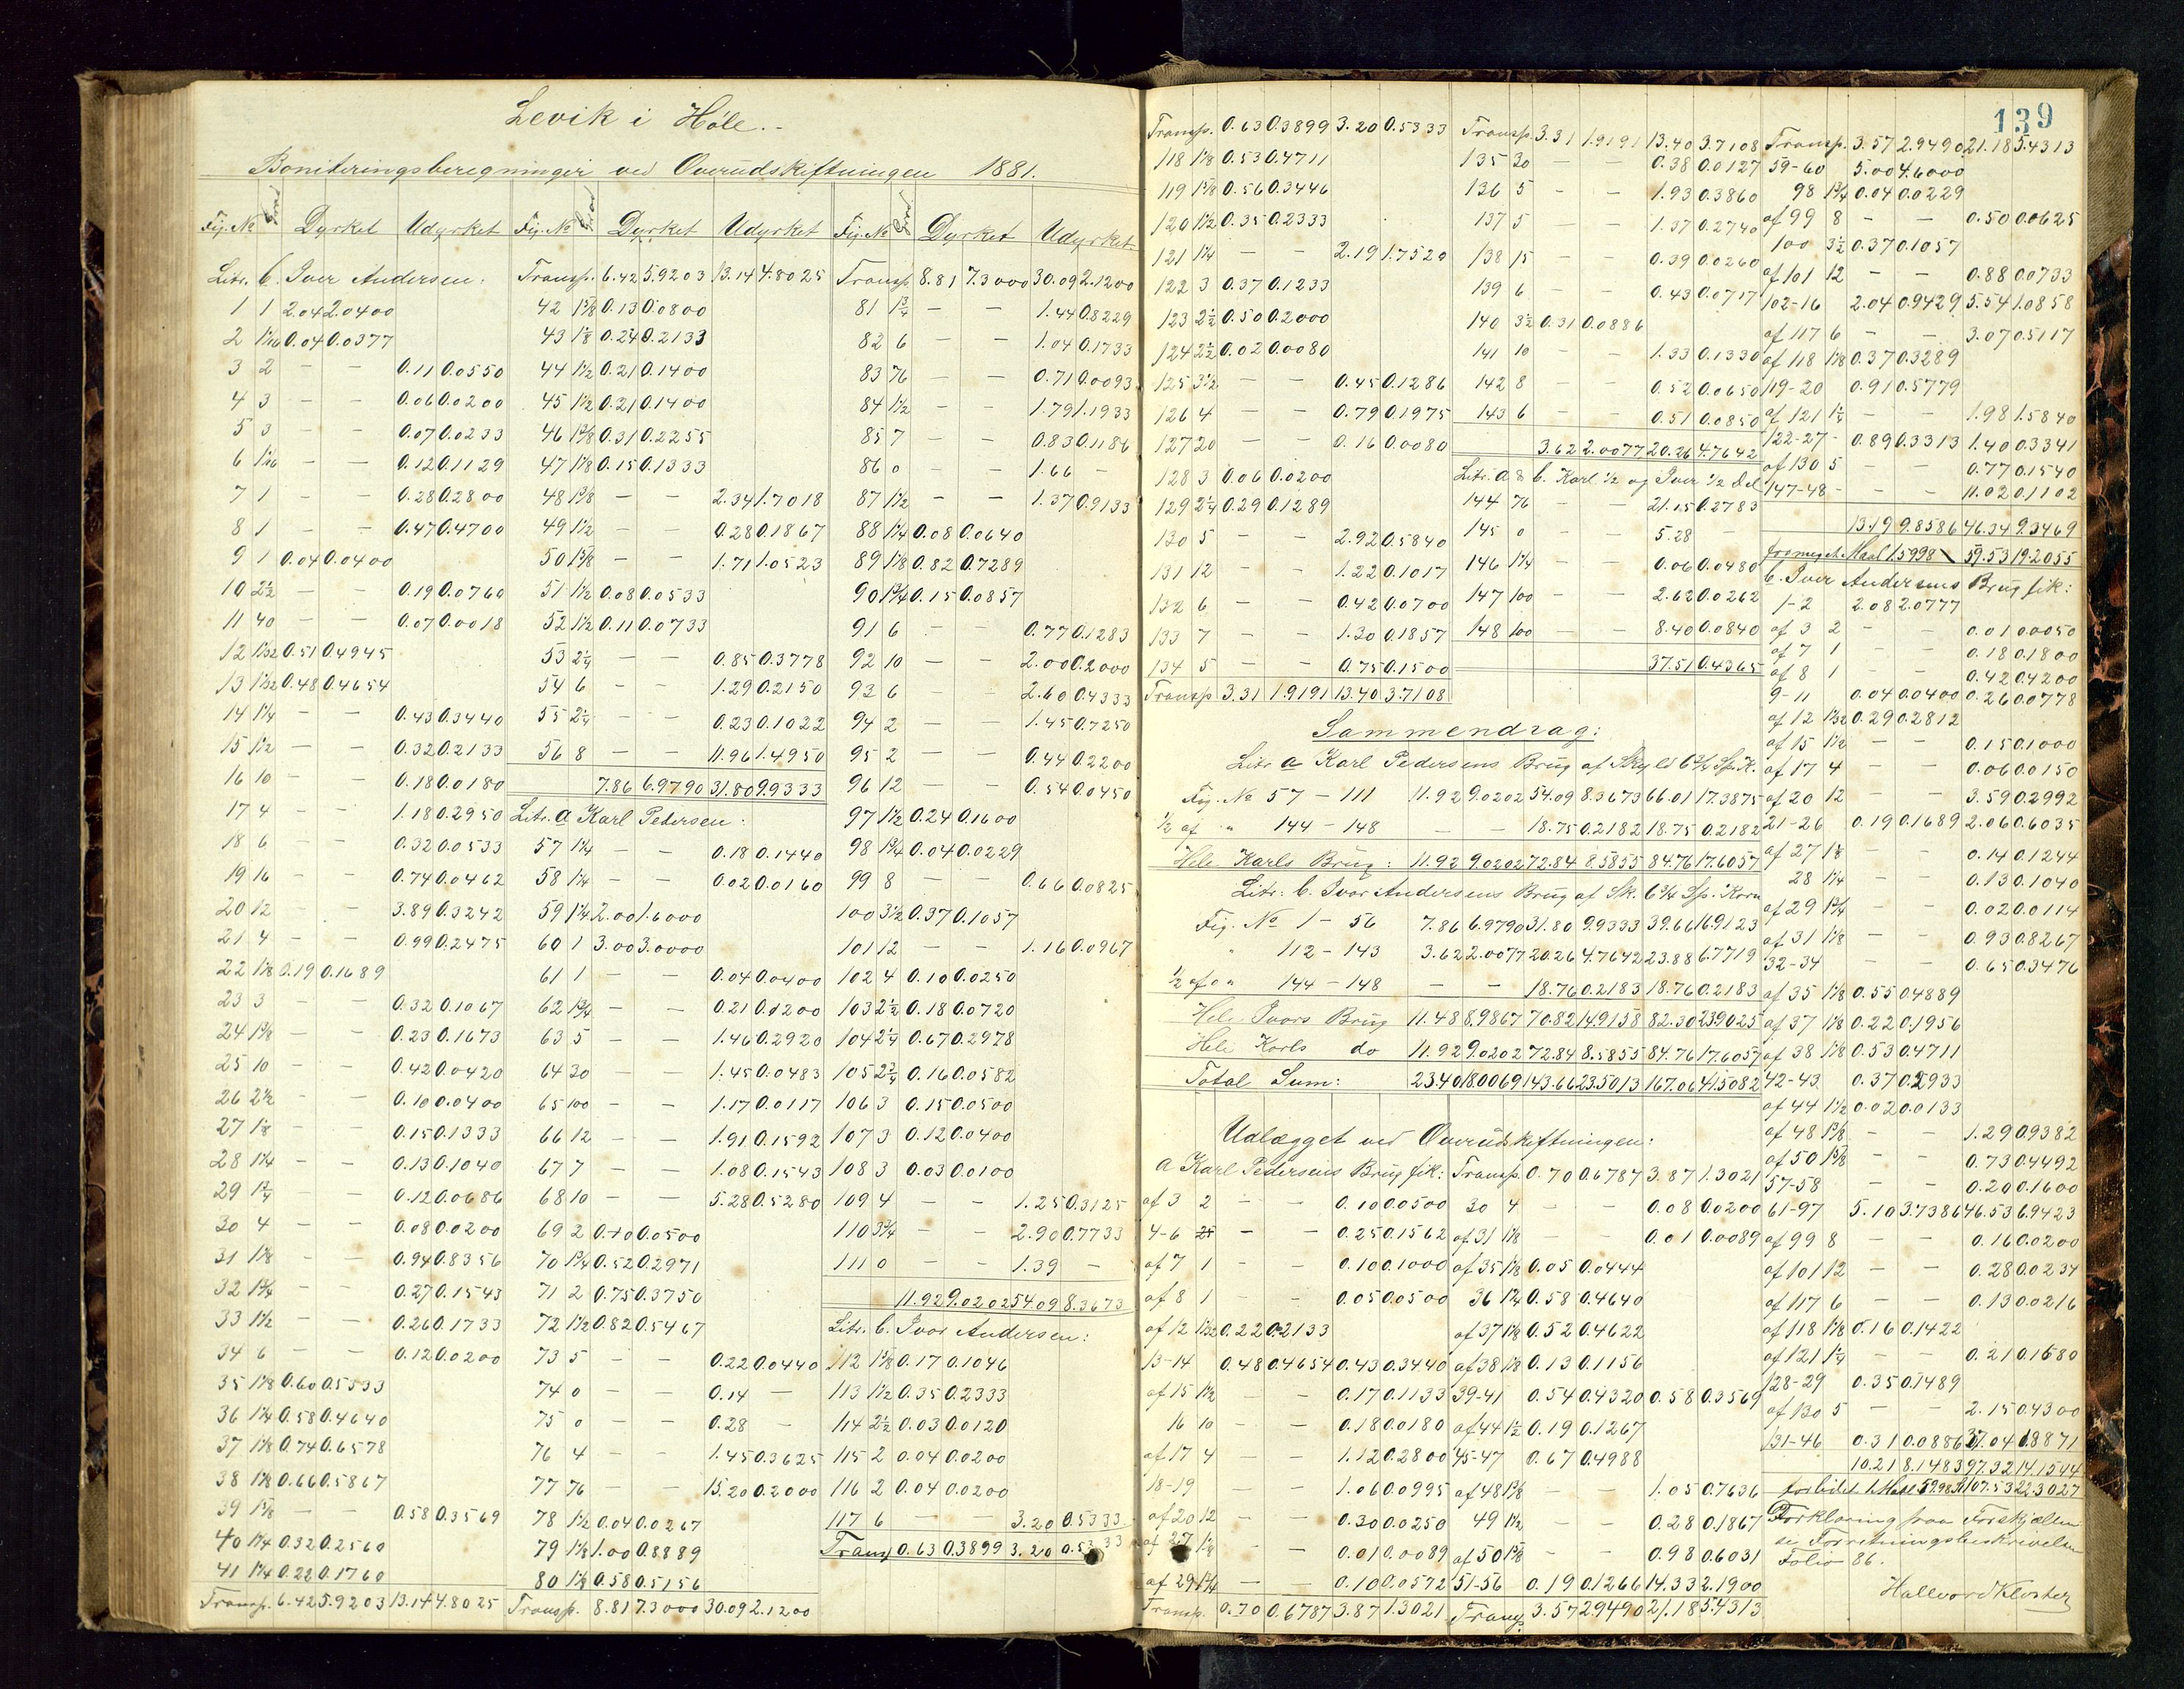 Levik i Høle.
Boniteringsberegninger ved Overudskiftningen 1881.
Fig. № Grad Dyrket Udyrket
Litr. b. Iver Andersen:
1 1 2.04 2.0400
2 1 1/16 0.04 0.0377
3 2 – – 0.11 0.0550
4 3 – – 0.06 0.0200
5 3 – – 0.07 0.0233
6 1 1/16 – – 0.12 0.1129
7 1 – – 0.28 0.2800
8 1 – – 0.47 0.4700
9 1 0.04 0.0400
10 2½ – – 0.19 0.0760
11 40 – – 0.07 0.0018
12 1 1/32 0.51 0.4945
13 1 1/32 0.48 0.4654
14 1¼ – – 0.43 0.3440
15 1½ – – 0.32 0.2133
16 10 – – 0.18 0.0180
17 4 – – 1.18 0.2950
18 6 – – 0.32 0.0533
19 16 – – 0.74 0.0462
20 12 – – 3.89 0.3242
21 4 – – 0.99 0.2475
22 1⅛ 0.19 0.1689
23 3 – – 0.32 0.1067
24 1⅜ – – 0.23 0.1673
25 10 – – 0.42 0.0420
26 2½ – – 0.10 0.0400
27 1⅛ – – 0.15 0.1333
28 1¼ – – 0.13 0.1040
29 1¾ – – 0.12 0.0686
30 4 – – 0.08 0.0200
31 1⅛ – – 0.94 0.8356
32 1¾ – – 0.27 0.1543
33 1½ – – 0.26 0.1733
34 6 – – 0.12 0.0200
35 1⅛ 0.60 0.5333
36 1¼ 0.58 0.4640
37 1⅛ 0.74 0.6578
38 1⅛ 0.66 0.5867
39 1⅝ – – 0.58 0.3569
40 1¼ 0.32 0.2560
41 1¼ 0.22 0.1760
Transp. 6.42 5.9203 13.14 4.8025
Fig. № Grad Dyrket Udyrket
Transp. 6.42 5.9203 13.14 4.8025
42 1⅝ 0.13 0.0800
43 1⅛ 0.24 0.2133
44 1½ 0.21 0.1400
45 1½ 0.21 0.1400
46 1⅜ 0.31 0.2255
47 1⅛ 0.15 0.1333
48 1⅜ – – 2.34 1.7018
49 1½ – – 0.28 0.1867
50 1⅝ – – 1.71 1.0523
51 1½ 0.08 0.0533
52 1½ 0.11 0.0733
53 2¼ – – 0.85 0.3778
54 6 – – 1.29 0.2150
55 2¼ – – 0.23 0.1022
56 8 – – 11.96 1.4950
7.86 6.9790 31.80 9.9333
Litr. a Karl Petersen:
57 1¼ – – 0.18 0.1440
58 1¼ – – 0.02 0.0160
59 1¼ 2.00 1.6000
60 1 3.00 3.0000
61 1 – – 0.04 0.0400
62 1¾ – – 0.21 0.1200
63 5 – – 1.46 0.2920
64 30 – – 1.45 0.0483
65 100 – – 1.17 0.0117
66 12 – – 1.91 0.1592
67 7 – – 1.08 0.1543
68 10 – – 5.28 0.5280
69 2 0.10 0.0500
70 1¾ 0.52 0.2971
71 2 0.75 0.3750
72 1½ 0.82 0.5467
73 5 – – 0.22 0.0440
74 0 – – 0.14 –
75 0 – – 0.28 –
76 4 – – 1.45 0.3625
77 76 – – 15.20 0.2000
78 1½ 0.04 0.0267
79 1⅛ 1.00 0.8889
80 1⅛ 0.58 0.5156
Transp. 8.81 7.3000 30.09 2.1200
Fig. № Grad Dyrket Udyrket
Transp 8.81 7.3000 30.09 2.1200
81 1¾ – – 1.44 0.8229
82 6 – – 1.04 0.1733
83 76 – – 0.71 0.0093
84 1½ – – 1.79 1.1933
85 7 – – 0.83 0.1186
86 0 – – 1.66 –
87 1½ – – 1.37 0.9133
88 1¼ 0.08 0.0640
89 1⅛ 0.82 0.7289
90 1¾ 0.15 0.0857
91 6 – – 0.77 0.1283
92 10 – – 2.00 0.2000
93 6 – – 2.60 0.4333
94 2 – – 1.45 0.7250
95 2 – – 0.44 0.2200
96 12 – – 0.54 0.0450
97 1½ 0.24 0.1600
98 1¾ 0.04 0.0229
99 8 – – 0.66 0.0825
100 3½ 0.37 0.1057
101 12 – – 1.16 0.0967
102 4 0.10 0.0250
103 2½ 0.18 0.0720
104 2¼ 0.67 0.2978
105 2¾ 0.16 0.0582
106 3 0.15 0.0500
107 3 0.12 0.0400
108 3 0.03 0.0100
109 4 – – 1.25 0.3125
110 3¾ – – 2.90 0.7733
111 0 – – 1.39 –
11.92 9.0202 54.09 8.3673
Litr. b. Ivar Andersen:
112 1⅝ 0.17 0.1046
113 1½ 0.35 0.2333
114 2½ 0.03 0.0120
115 2 0.04 0.0200
116 2 0.04 0.0200
117 6 – – 3.20 0.5333
Transp 0.63 0.3899 3.20 0.5333
139
Transp. 0.63 0.3899 3.20 0.5333
118 1⅛ 0.53 0.4711
119 1⅝ 0.56 0.3446
120 1½ 0.35 0.2333
121 1¼ – – 2.19 1.7520
122 3 0.37 0.1233
123 2½ 0.50 0.2000
124 2½ 0.02 0.0080
125 3½ – – 0.45 0.1286
126 4 – – 0.79 0.1975
127 20 – – 0.16 0.0080
128 3 0.06 0.0200
129 2¼ 0.29 0.1289
130 5 – – 2.92 0.5840
131 12 – – 1.22 0.1017
132 6 – – 0.42 0.0700
133 7 – – 1.30 0.1857
134 5 – – 0.75 0.1500
Transp 3.31 1.9191 13.40 3.7108
Transp. 3.31 1.9191 13.40 3.7108
135 30 – – 0.38 0.0127
136 5 – – 1.93 0.3860
137 5 – – 1.37 0.2740
138 15 – – 0.39 0.0260
139 6 – – 0.43 0.0717
140 3½ 0.31 0.0886
141 10 – – 1.33 0.1330
142 8 – – 0.52 0.0650
143 6 – – 0.51 0.0850
3.62 2.0077 20.26 4.7642
Litr. a & b. Karl ½ og Iver ½ Del
144 76 – – 21.15 0.2783
145 0 – – 5.28 –
146 1¼ – – 0.06 0.0480
147 100 – – 2.62 0.0262
148 100 – – 8.40 0.0840
37.51 0.4365
Sammendrag:
Litr a Karl Pedersens Brug af Skyld 6¾ Sp. K.
Fig. № 57 – 111 11.92 9.0202 54.09 8.3673 66.01 17.3875
½ af " 144 – 148 – – 18.75 0.2182 18.75 0.2182
Hele Karls Brug: 11.92 9.0202 72.84 8.5855 84.76 17.6057
Litr: b. Ivar Andersens Brug af Sk. 6¾ Sp. Korn
Fig. № 1 – 56 7.86 6.9790 31.80 9.9333 39.66 16.9123
" 112 – 143 3.62 2.0077 20.26 4.7642 23.88 6.7719
½ af " 144 – 148 – – 18.76 0.2183 18.76 0.2183
Hele Ivars Brug 11.48 8.9867 70.82 14.9158 82.30 23.9025
Hele Karls do 11.92 9.0202 72.84 8.5855 84.76 17.6057
Total Sum: 23.40 18.0069 143.66 23.5013 167.06 41.5082
Udlægget ved Overudskiftningen:
a Karl Pedersens Brug fik:
af 3 2 – – 0.10 0.0500
4-6 – – 0.25 0.1562
af 7 1 – – 0.10 0.1000
af 8 1 – – 0.05 0.0500
af 12 1 1/32 0.22 0.2133
13-14 0.48 0.4654 0.43 0.3440
af 15 1½ – – 0.17 0.1133
16 10 – – 0.18 0.0180
af 17 4 – – 1.12 0.2800
18-19 – – 1.06 0.0995
af 20 12 – – 0.30 0.0250
af 27 1⅛ – – 0.01 0.0089
af 29 1¾ – – 0.10 0.0572
Transp. 0.70 0.6787 3.87 1.3021
Transp. 0.70 0.6787 3.87 1.3021
30 4 – – 0.08 0.0200
af 31 1⅛ – – 0.01 0.0089
af 35 1⅛ 0.05 0.0444
36 1¼ 0.58 0.4640
af 37 1⅛ 0.52 0.4622
af 38 1⅛ 0.13 0.1156
39-41 0.54 0.4320 0.58 0.3569
af 44 1½ 0.19 0.1267
45-47 0.67 0.4988
af 48 1⅜ – – 1.05 0.7636
49 1½ – – 0.28 0.1867
af 50 1⅝ – – 0.98 0.6031
51-56 0.19 0.1266 14.33 2.1900
Transp. 3.57 2.9490 21.18 5.4313
Transp. 3.57 2.9490 21.18 5.4313
59-60 5.00 4.6000
98 1¾ 0.04 0.0229
af 99 8 – – 0.50 0.0625
100 3½ 0.37 0.1057
af 101 12 – – 0.88 0.0733
102-16 2.04 0.9429 5.54 1.0858
af 117 6 – – 3.07 0.5117
af 118 1⅛ 0.37 0.3289
119-20 0.91 0.5779
af 121 1¼ – – 1.98 1.5840
122-27 0.89 0.3313 1.40 0.3341
af 130 5 – – 0.77 0.1540
147-48 – – 11.02 0.1102
13.19 9.8586 46.34 9.3469
formeget Maal 1.5998 59.53 19.2055
b. Iver Andersens Brug fik:
1-2 2.08 2.0777
af 3 2 – – 0.01 0.0050
af 7 1 – – 0.18 0.1800
af 8 1 – – 0.42 0.4200
9-11 0.04 0.0400 0.26 0.0778
af 12 1 1/32 0.29 0.2812
af 15 1½ – – 0.15 0.1000
af 17 4 – – 0.06 0.0150
af 20 12 – – 3.59 0.2992
21-26 0.19 0.1689 2.06 0.6035
af 27 1⅛ – – 0.14 0.1244
28 1¼ – – 0.13 0.1040
af 29 1¾ – – 0.02 0.0114
af 31 1⅛ – – 0.93 0.8267
32-34 – – 0.65 0.3476
af 35 1⅛ 0.55 0.4889
af 37 1⅛ 0.22 0.1956
af 38 1⅛ 0.53 0.4711
42-43 0.37 0.2933
af 44 1½ 0.02 0.0133
af 48 1⅜ – – 1.29 0.9382
af 50 1⅝ – – 0.73 0.4492
57-58 – – 0.20 0.1600
61-97 5.10 3.7386 46.53 6.9423
af 99 8 – – 0.16 0.0200
af 101 12 – – 0.28 0.0234
af 117 6 – – 0.13 0.0216
af 118 1⅛ 0.16 0.1422
af 121 1¼ – – 0.21 0.1680
128-29 0.35 0.1489
af 130 5 – – 2.15 0.4300
131-46 0.31 0.0886 37.04 1.8871
10.21 8.1483 97.32 14.1544
for lidet 107.53 22.3027
Forklaring fraa Forskjællen
se Forretningsbeskrivelsen
Folio 86.
Hallvord Kloster